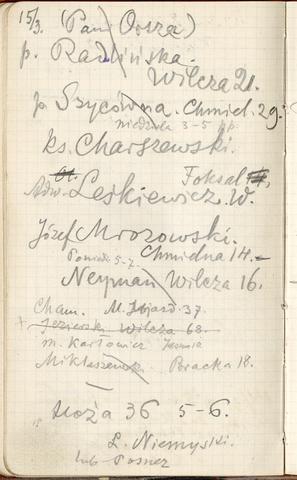 15/3. (Pani Orsza)
p. Radlińska.
Wilcza 21.
p. Szycówna. Chmiel. 29.
niedziela 3-5 pp.
ks. Charszewski.
Foksal
Adw. Leśkiewicz W.
Józef Mrozowski.
Chmielna 14.
Poniedz. 5-7.
Neyman Wilcza 16.
Cham. Al. Ujazd. 37.
Jezierski Wilcza 68.
m. Karłowicz Jasna
Miklaszewski Bracka 18.
Hoża 36 5-6.
L. Niemyski.
lub Posner